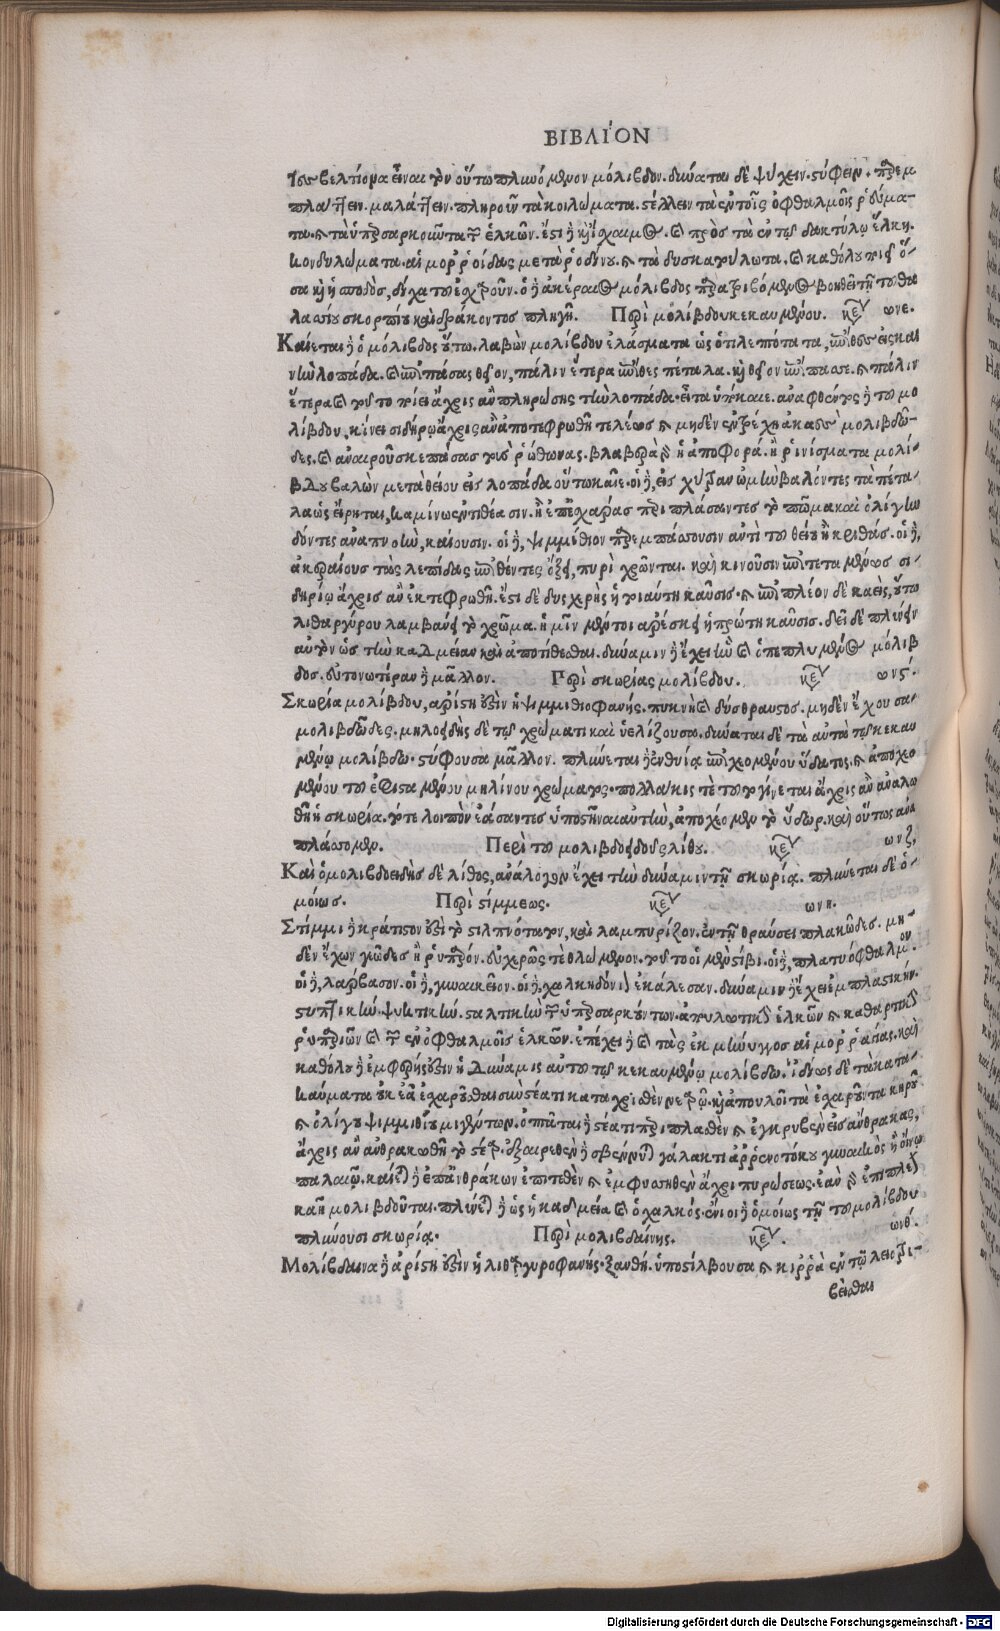 ΒΙΒΛΙΌΝ
βελτίονα εἶναι τὸν οὕτω πλυνόμενον μόλιβδον. δύναται δὲ ψύχειν. στύφειν. παρεμ
πλάττειν. μαλάττειν. πληροῦν τὰ κοιλώματα. στέλλειν τὰ ἐν τοῖς ὀφθαλμοῖς ῥεύμα-
τα. καὶ τὰ ὑπερσαρκοῦντα τῶν ἑλκῶν. ἔστι δὲ καὶ ἴσχαιμος. καὶ πρὸς τὰ ἐν τῷ δακτύλῳ ἕλκη.
κονδυλώματα. αἱμορροίδας μετὰ ῥοδίνου. καὶ τὰ δυσκατούλωτα. καὶ καθόλου ποιεῖ ὅ-
σα καὶ ἡ σποδὸς, δίχα τοῦ ἐσχαροῦν. ὁ δὲ ἀκέραιος μόλιβδος παρατριβόμενος βοηθεῖ τῇ τοῦ θα
λασσίου σκορπίου καὶ δράκοντος πληγῇ. Περὶ μολίβδου κεκαυμένου. κεφ ϙνε.
Καίεται δὲ ὁ μόλιβδος οὕτω. λαβὼν μολίβδου ἐλάσματα ὡς ὅτι λεπτότατα, ἐπίθες εἰς και
νὴν λοπάδα. καὶ ἐπιπάσας θεῖον, πάλιν ἕτερα ἐπίθες πέταλα. καὶ θεῖον ἐπίπασσε. καὶ πάλιν
ἕτερα καὶ τοῦτο ποίει ἄχρις ἂν πληρώσῃς τὴν λοπάδα. εἶτα ὑπόκαιε. ἀναφθέντος δὲ τοῦ μο
λίβδου, κίνει σιδήρῳ ἄχρις ἂν ἀποτεφρωθῇ τελέως καὶ μηδὲν ἐντρέχῃ μολιβδῶ-
δες. καὶ ἀναιροῦ σκεπάσας τοὺς ῥώθωνας. βλαβερὰ γὰρ ἡ ἀποφορά. ἢ ῥινίσματα μολί-
βδου βαλὼν μετὰ θείου εἰς λοπάδα οὕτω καῖε. οἱ δὲ, εἰς χύτραν ὠμὴν βαλόντες τὰ πέτα-
λα ὡς εἴρηται, καμίνῳ ἐντιθέασιν. ἢ ἐπ' ἐσχάρας περιπλάσαντες τὸ πῶμα καὶ ὀλίγην
δόντες ἀναπνοὴν, καίουσιν. οἱ δὲ, ψιμμίθιον παρεμπάσσουσιν ἀντὶ τοῦ θείου ἢ κριθάς. οἱ δὲ,
ἀκεραίους τὰς λεπίδας ἐπιθέντες ὀξεῖ πυρὶ χρῶνται. καὶ κινοῦσιν ἐπιτεταμένως σι-
δηρίῳ ἄχρις ἂν ἐκτεφρωθῇ. ἔστι δὲ δυσχερὴς ἡ τοιαύτη καῦσις. καὶ ἐπιπλέον δὲ καεὶς, οὕτω
λιθαργύρου λαμβάνει τὸ χρῶμα. ἡμῖν μέντοι ἀρέσκει ἡ πρώτη καῦσις. δεῖ δὲ πλύνειν
αὐτὸν ὡς τὴν καδμείαν καὶ ἀποτίθεσθαι. δύναμιν δὲ ἔχει ἣν καὶ ὁ πεπλυμένος μόλιβ
δος. εὐτονωτέραν δὲ μᾶλλον. Περὶ σκωρίας μολίβδου. κεφ ϙνϛ.
Σκωρία μολίβδου, ἀρίστη ἐστὶν ἡ ψιμμιθιοφανής. πυκνὴ καὶ δύσθραυστος. μηδὲν ἔχουσα
μολιβδῶδες. μηλοειδὴς δὲ τῷ χρώματι καὶ ὑελίζουσα. δύναται δὲ τὰ αὐτὰ τῷ κεκαυ
μένῳ μολίβδῳ. στύφουσα μᾶλλον. πλύνεται δὲ ἐν θυίᾳ ἐπιχεομένου ὕδατος. καὶ ἀποχεο
μένου τοῦ ἐφισταμένου μηλίνου χρώματος. πολλάκις τε τοῦτο γίνεται ἄχρις ἂν ἀναλω
θῇ ἡ σκωρία. τότε λοιπὸν ἐάσαντες ὑποστῆναι αὐτὴν, ἀποχέομεν τὸ ὕδωρ. καὶ οὕτως ἀνα
πλάσσομεν. Περὶ τοῦ μολιβδοειδοῦς λίθου. κεφ ϙνζ.
Καὶ ὁ μολιβδοειδὴς δὲ λίθος, ἀνάλογον ἔχει τὴν δύναμιν τῇ σκωρίᾳ. πλύνεται δὲ ὁ-
μοίως. Περὶ στίμμεως. κεφ ϙνη.
Στίμμι δὲ κράτιστον ἐστὶ τὸ στιλπνότατον, καὶ λαμπυρίζον. ἐν τῇ θραύσει πλακῶδες. μη-
δὲν ἔχων γεῶδες ἢ ῥυπαρόν. εὐχερῶς τε θλώμενον. τοῦτο οἱ μὲν στίβι. οἱ δὲ, πλατυόφθαλμον.
οἱ δὲ, λάρβασον. οἱ δὲ, γυναικεῖον. οἱ δὲ, χαλκηδόνιον ἐκάλεσαν. δύναμιν δὲ ἔχει ἐμπλαστικήν.
στυπτικήν. ψυκτικήν. σταλτικὴν τῶν ὑπερσαρκούντων. ἀπουλωτικὴν ἑλκῶν καὶ καθαρτικὴν
ῥυπαριῶν καὶ τῶν ἐν ὀφθαλμοῖς ἑλκῶν. ἐπέχει δὲ καὶ τὰς ἐκ μήνιγγος αἱμορραγίας. καὶ
καθόλου δὲ ἐμφερής ἐστιν ἡ δύναμις αὐτοῦ τῷ κεκαυμένῳ μολίβδῳ. ἰδίως δὲ τὰ κατα-
καύματα οὐκ ἐᾷ ἐσχαροῦσθαι σὺν στέατι καταχρισθὲν νεαρῷ. καὶ ἀπουλοῖ τὰ ἐσχαροῦντα κηροῦ
καὶ ὀλίγου ψιμμιθίου μιχθέντων. ὀπτᾶται δὲ στέατι περιπλασθὲν καὶ ἐγκρυβὲν εἰς ἄνθρακας,
ἄχρις ἂν ἀνθρακωθῇ τὸ στέαρ. ἐξαιρεθὲν δὲ σβέννυται γάλακτι ἀρρενοτόκου γυναικὸς ἢ οἴνῳ
παλαιῷ. καίεται δὲ ἐπ' ἀνθράκων ἐπιτεθὲν καὶ ἐμφυσηθὲν ἄχρι πυρώσεως. ἐὰν γὰρ ἐπιπλεῖον
καῇ μολιβδοῦται. πλύνεται δὲ ὡς ἡ καδμεία καὶ ὁ χαλκός. ἔνιοι δὲ ὁμοίως τῇ τοῦ μολίβδου
πλύνουσι σκωρίᾳ. Περὶ μολιβδαίνης. κεφ. ϙνθ.
Μολίβδαινα δὲ ἀρίστη ἐστὶν ἡ λιθαργυροφανής. ξανθή. ὑποστίλβουσα καὶ κιρρὰ ἐν τῷ λειοτρι-
βεῖσθαι